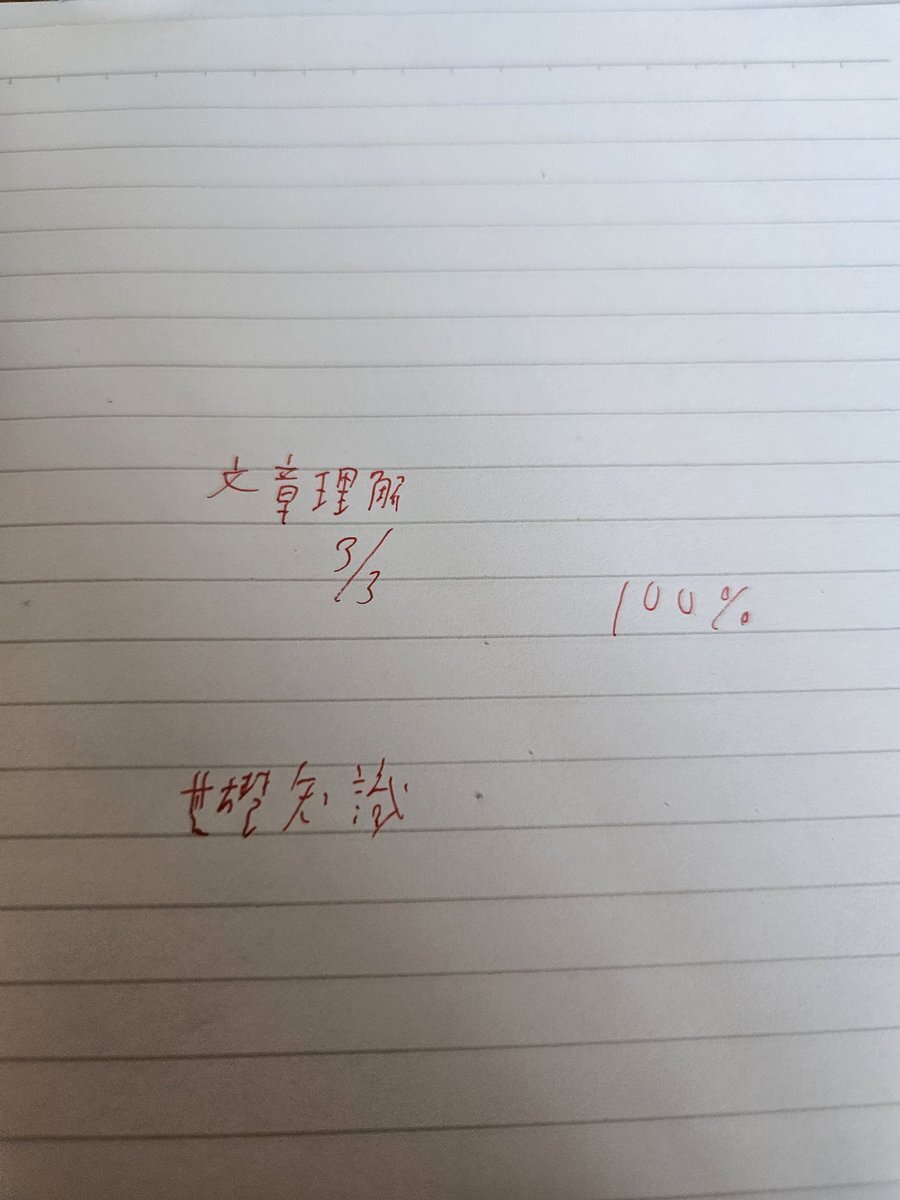 文章理解
3/3
100%
基礎知識